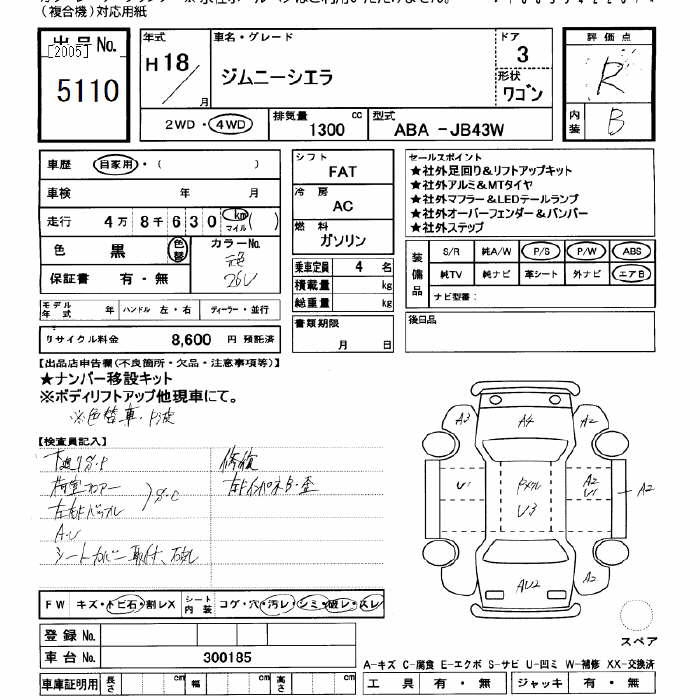 (複合機)対応用紙
出品No.
[2005]
5110
年式
H18/ 月
車名・グレード
ジムニーシエラ
ドア
3
形状
ワゴン
2WD・4WD
排気量 1300 cc
型式 ABA -JB43W
評価点
R
内装
B
車歴 自家用・( )
車検 年 月
走行 4万8千630 km マイル( )
色 黒 色替
カラーNo.
元色
26U
保証書 有・無
モデル年式 年 ハンドル 左・右 ディーラー・並行
リサイクル料金 8,600 円 預託済
シフト
FAT
冷房
AC
燃料
ガソリン
乗車定員 4 名
積載量 kg
総重量 kg
書類期限
月 日
セールスポイント
★社外足回り&リフトアップキット
★社外アルミ&MTタイヤ
★社外マフラー&LEDテールランプ
★社外オーバーフェンダー&バンパー
★社外ステップ
装備品
S/R 純A/W P/S P/W ABS
純TV 純ナビ 革シート 外ナビ エアB
ナビ型番:
後日品
【出品店申告欄(不良箇所・欠品・注意事項等)】
★ナンバー移設キット
※ボディリフトアップ他現車にて。
※色替車・
【検査員記入】
下廻りサ・P
荷室フロアー
サ・C
A・U
シートカバー取付、
修復
A3 A4 A2
U1 ドメクル U3 A2 U1 A2
AU2 A2
FW キズ・トビ石・割レX
シート内装 コゲ・穴・汚レ・シミ・破レ・スレ
登録No.
車台No. 300185
車庫証明用 長さ cm 幅 cm 高さ cm
スペア
A-キズ C-腐食 E-エクボ S-サビ U-凹ミ W-補修 XX-交換済
工具 有・無 ジャッキ 有・無